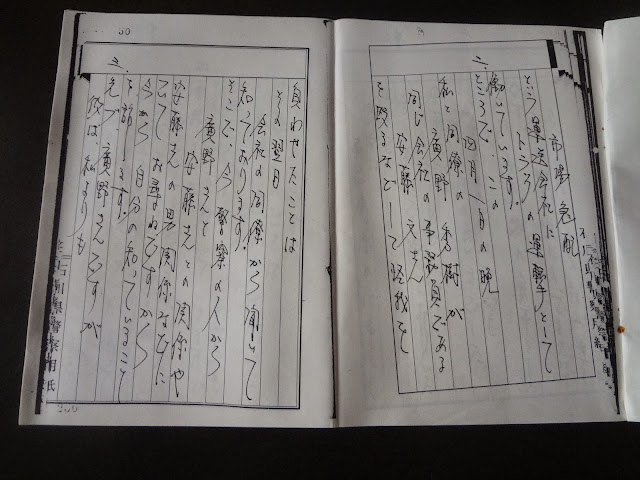 市場急配
という運送会社に
トラックの運転手として
働いています。
二、
ところで、この
四月一日の晩
私と同僚の
廣野秀樹が
同じ会社の事務員である
安藤文さん
を殴るなどして怪我を
負わせたことは
その翌日
会社の同僚から聞いて
知っております
そこで、今警察の人から
廣野さんと
安藤さんとの関係や
安藤さんの男関係などに
ついてお尋ねですから
今から自分の知っていること
を話します。
三、
先づ、廣野さんですが
彼は、私よりも
石川県警察用紙